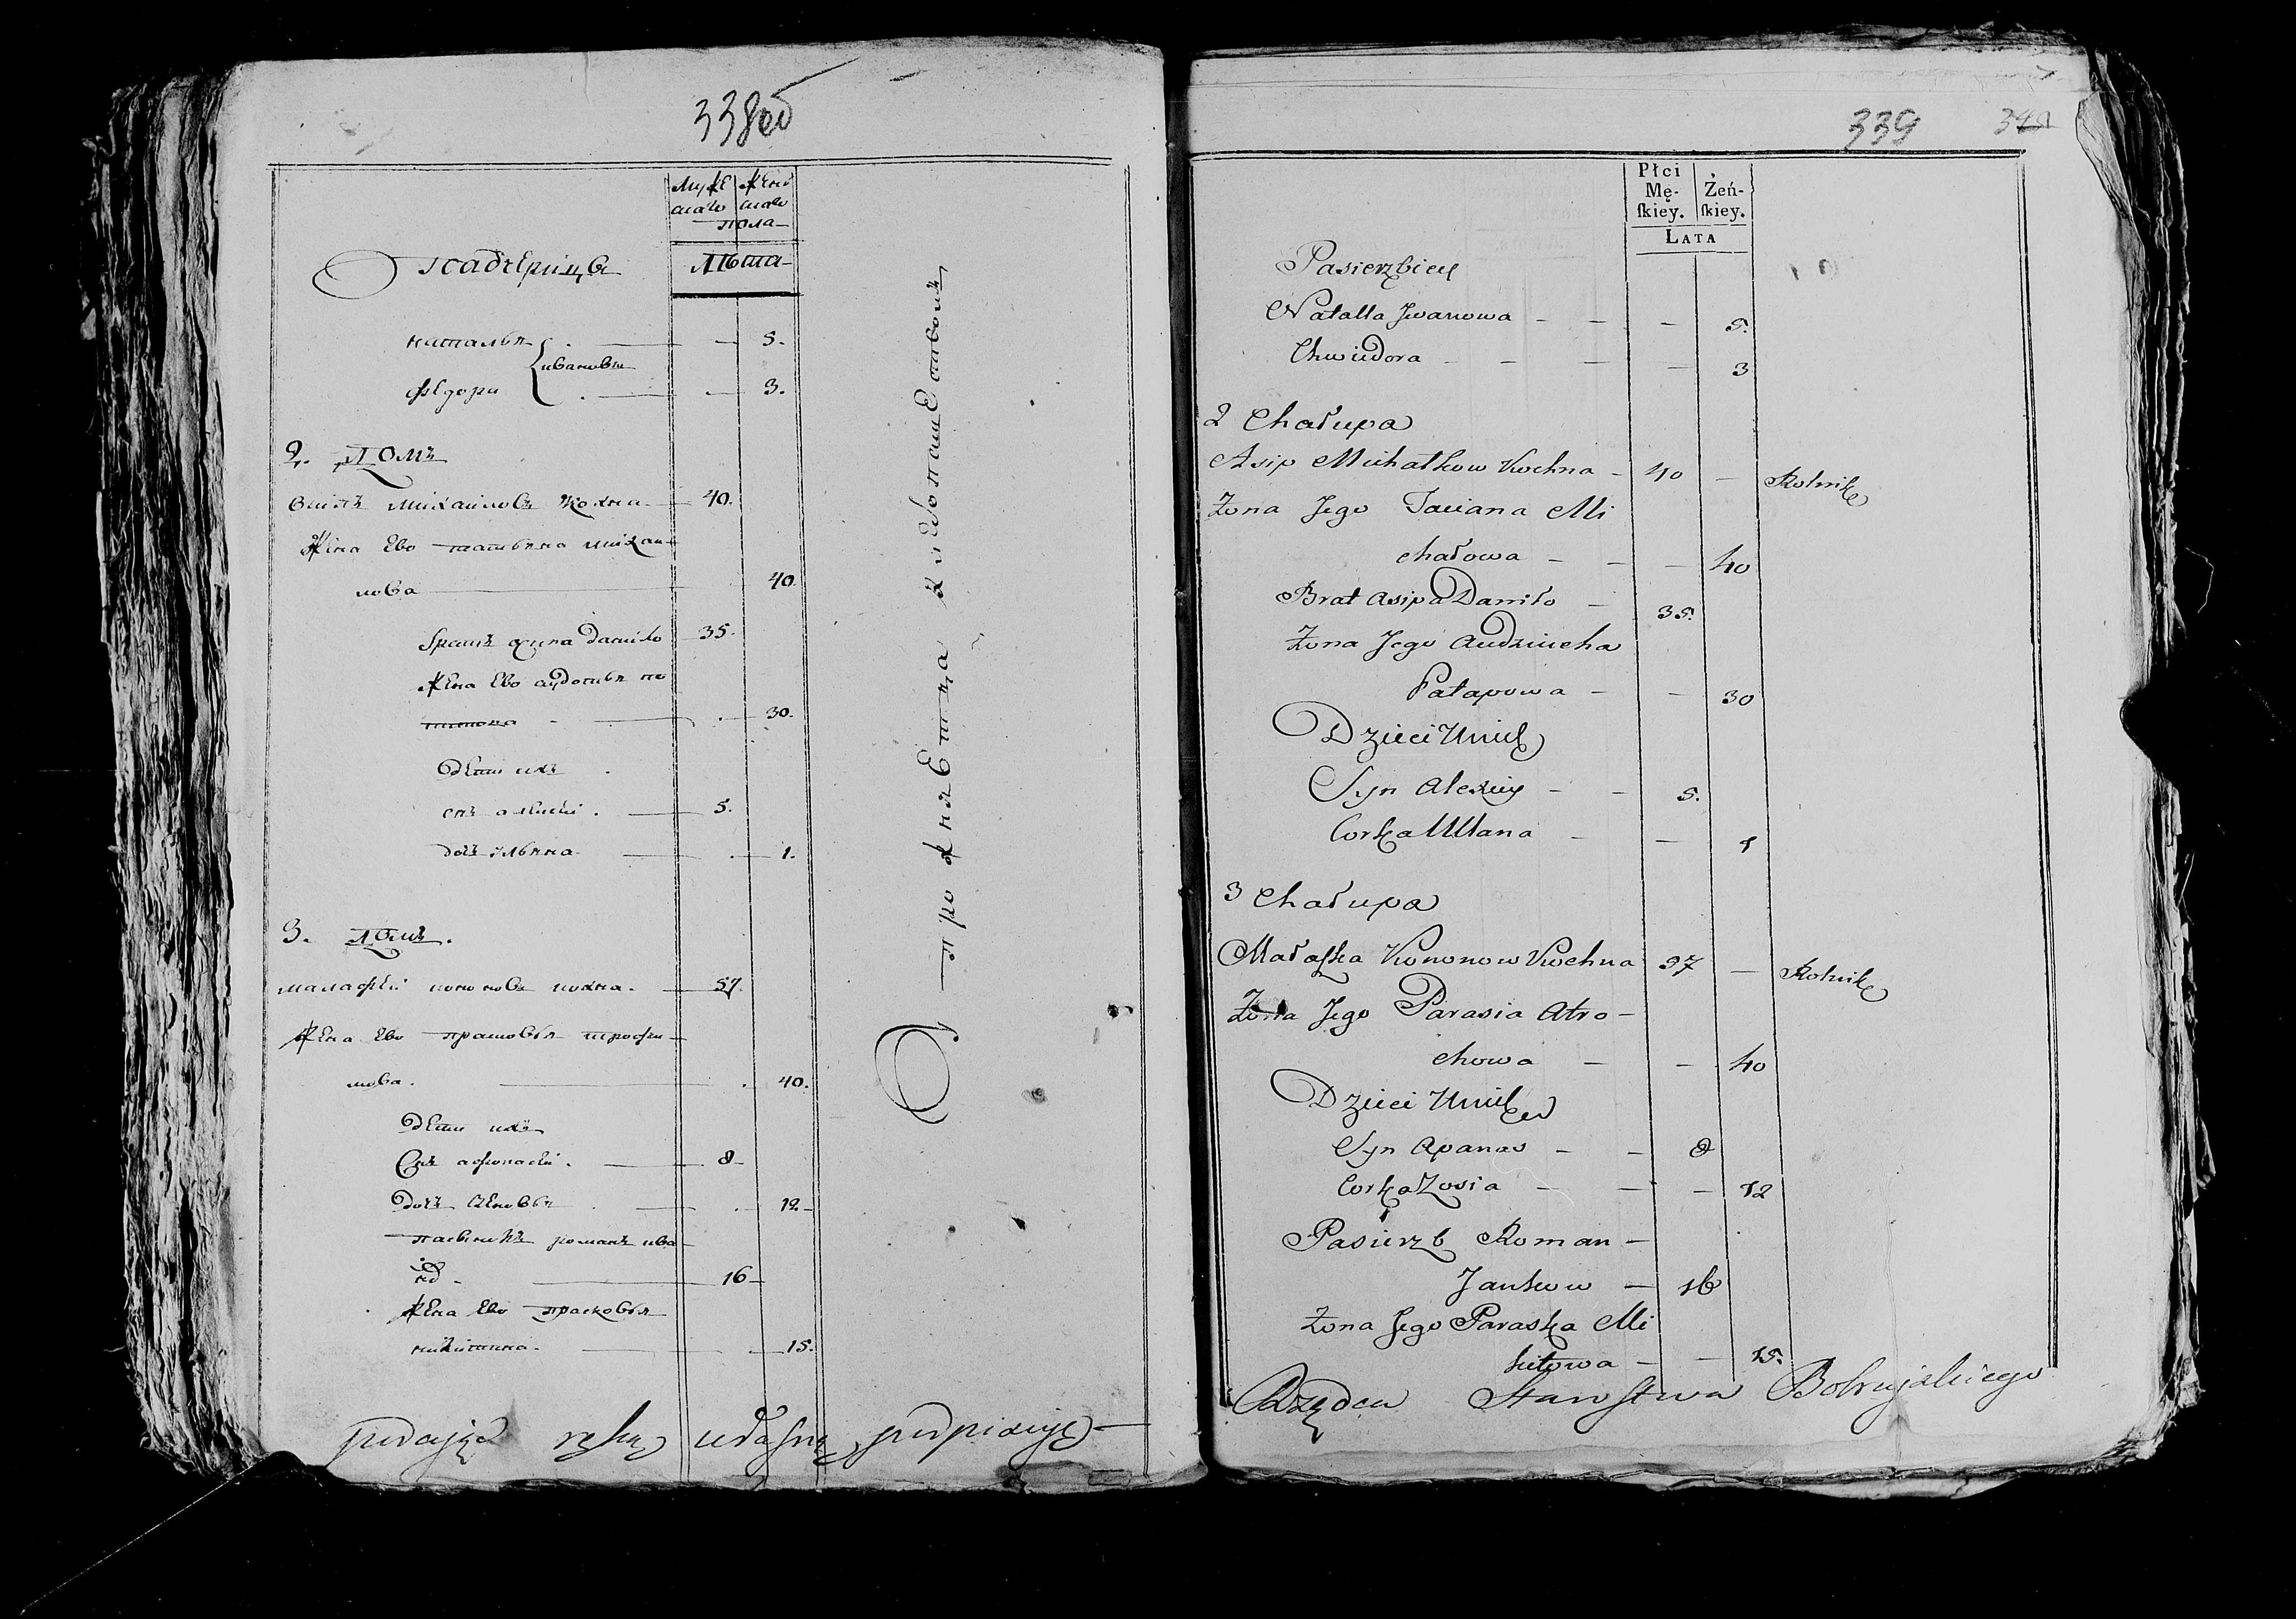 338об
Муже
скаго
Женс
скаго
пола
Лѣта
Падчерицы
наталья 5.
ивановы
Федора 3.
2. Домъ
Осипъ Михайловъ Кохна 40.
Жена Ево татьяна михаи
лова 40.
братъ осипа данило 35.
Жена Ево авдотья по
тапова 30.
Дети ихъ
снъ алексѣй 5.
дочь ульяна 1.
3. Домъ.
малафѣй кононовъ кохна. 37.
Жена Ево прасковья трофи
мова. 40.
Дети ихъ
Снъ афонасѣй. 8
Дочь 12
пасынокъ романъ ива
нов 16
Жена Ево прасковья
никитина. 15.
podaję ręką własną podpisuję
339
Płci
Mę-
ſkiey.
Żeń-
ſkiey.
LATA
Pasierzbicy
Natalla Jwanowa – – – 5.
Chwiedora – – – – 3
2 Chałupa
Asip Michałkow Kochna – 40 – Rolnik
Żona Jego Taciana Mi
chałowa – – – 40
Brat Asipa Daniło – 35.
Żona Jego Audziucha
Patapowa – – 30
Dzieci Unich
Syn Alexiey – – 5.
Corka Ullana – – 1
3 Chałupa
Małaſka Kononow Kochna 37 – Rolnik
Żona Jego Parasia Atro-
chowa – – 40
Dzieci Unich
Syn Apanas – – 8
Corka Zosia – – – 12
Pasierzb Roman –
Jankow – 16
Żona Jego Paraska Mi
kitowa – – 15.
Rządca Starostwa Bobruyskiego